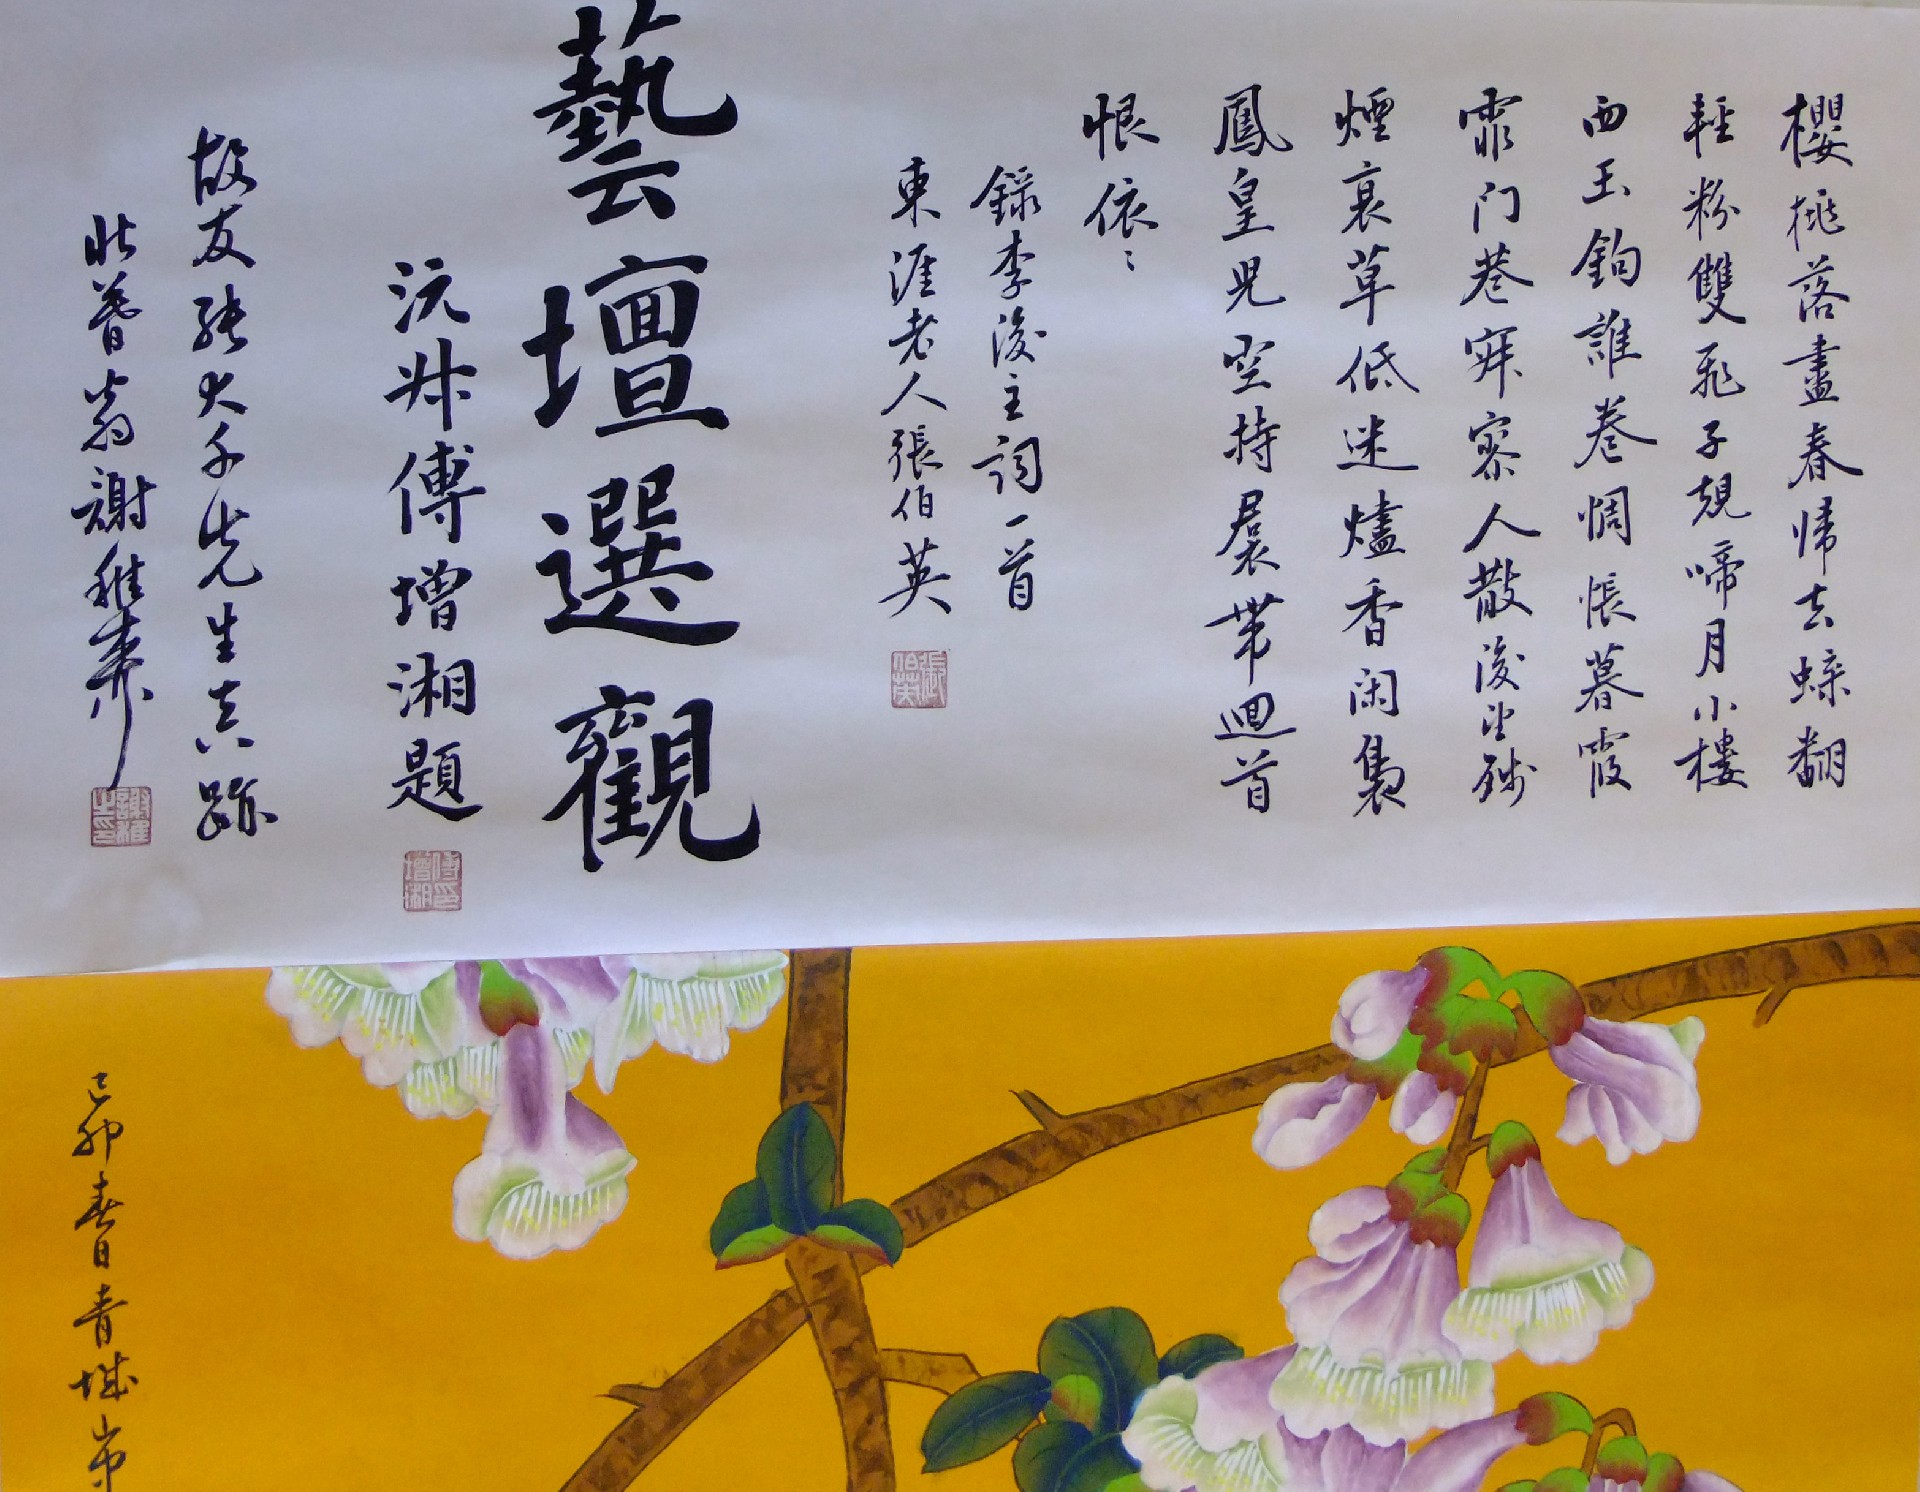 櫻桃落盡春歸去蝶翻
輕粉雙飛子規啼月小樓
西玉鉤誰卷惆悵暮霞
霏门巷寂寥人散後望殘
煙衰草低迷爐香闲裊
鳳皇兒空持裠帶迴首
恨依〻
錄李後主詞一首
東涯老人張伯英
張伯英
藝壇選觀
沅叔傅增湘題
傅印增湘
故友張大千先生真跡
壯暮翁謝稚柳
己卯春日青城山